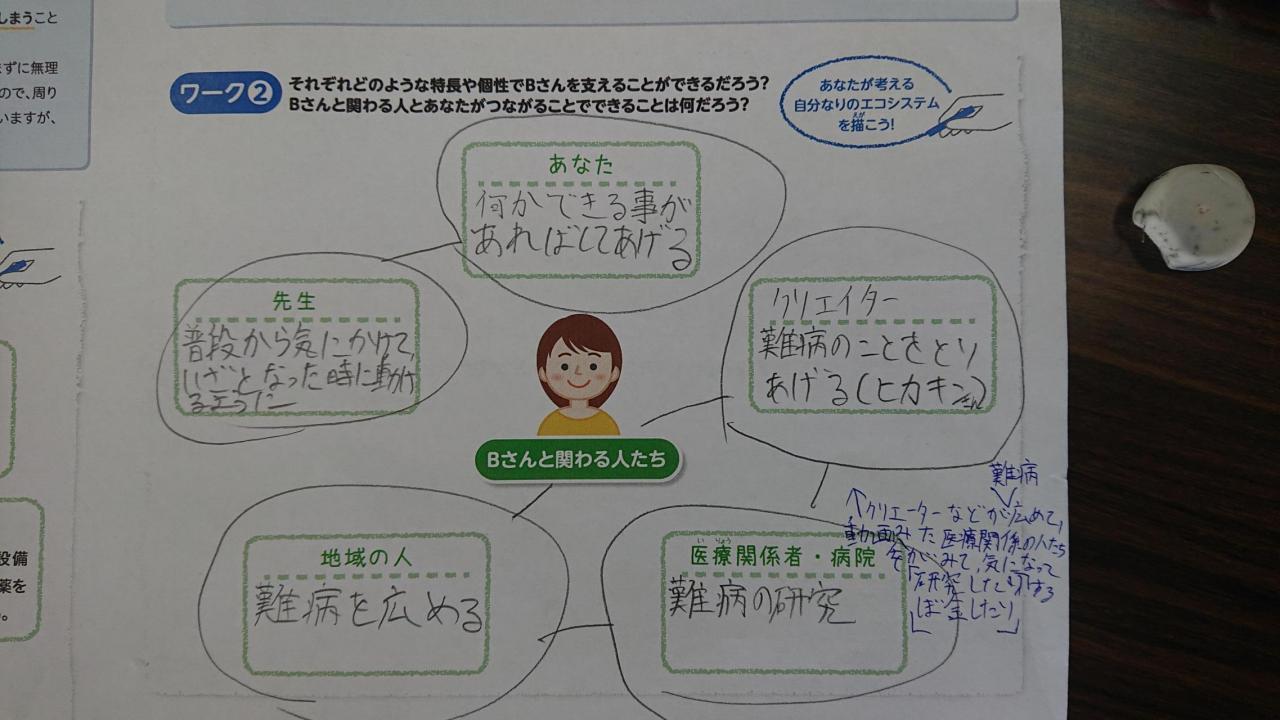 しまうこと
ずに無理
ので、周り
いますが、
ワーク2
それぞれどのような特長や個性でBさんを支えることができるだろう？
Bさんと関わる人とあなたがつながることでできることは何だろう？
あなたが考える
自分なりのエコシステム
を描こう!
えが
あなた
何かできる事が
あればしてあげる
先生
普段から気にかけて、
いざとなった時に動け
るように
クリエイター
難病のことをとり
あげる(ヒカキンさん)
Bさんと関わる人たち
地域の人
難病を広める
医療関係者・病院
いりょう
難病の研究
難病
↑クリエーターなどが広めて、
動画みた医療関係の人たち
がみて、気になって
研究したり
ぼ金したり
設備
薬を